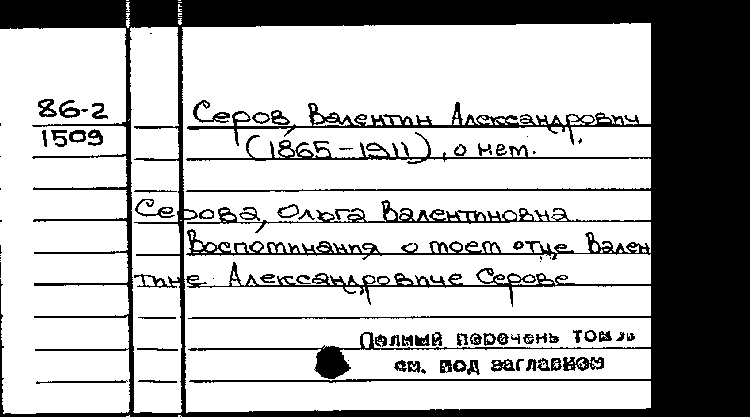 86-2
1509
Серов, Валентин Александрович
(1865-1911), о нем.
Серова, Ольга Валентиновна
Воспоминания о моем отце Вален
тине Александровиче Серове
Полный перечень том
см. под заглавием